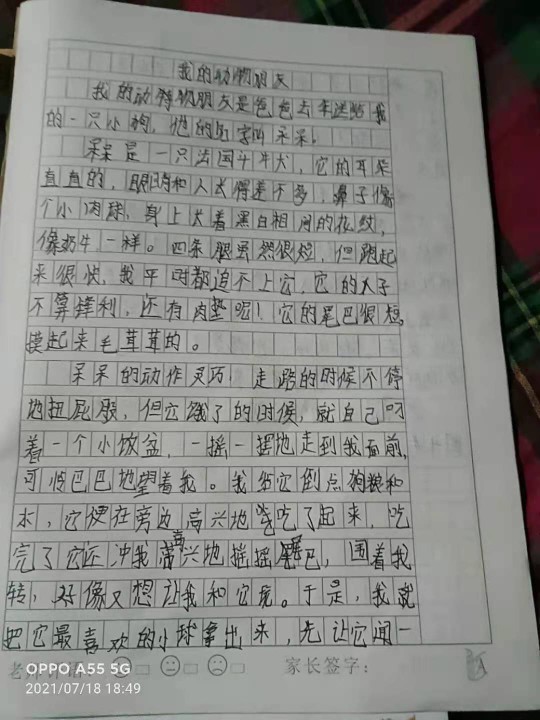 我的动物朋友
我的动物朋友是爸爸去年送给我
的一只小狗，他的名字叫呆呆。
呆呆是一只法国斗牛犬，它的耳朵
直直的，眼睛和人长得差不多，鼻子像
个小肉球，身上长着黑白相间的花纹，
像奶牛一样。四条腿虽然很短，但跑起
来很快，我平时都追不上它，它的爪子
不算锋利，还有肉垫呢！它的尾巴很短，
摸起来毛茸茸的。
呆呆的动作灵巧，走路的时候不停
地扭屁股，但它饿了的时候，就自己叼
着一个小饭盆，一摇一摆地走到我面前，
可怜巴巴地望着我。我给它倒点狗粮和
水，它便在旁边高兴地吃了起来，吃
完了它还冲我高兴地摇摇尾巴，围着我
转，好像又想让我和它玩。于是，我就
把它最喜欢的小球拿出来，先让它闻一
家长签字：
OPPO A55 5G
2021/07/18 18:49